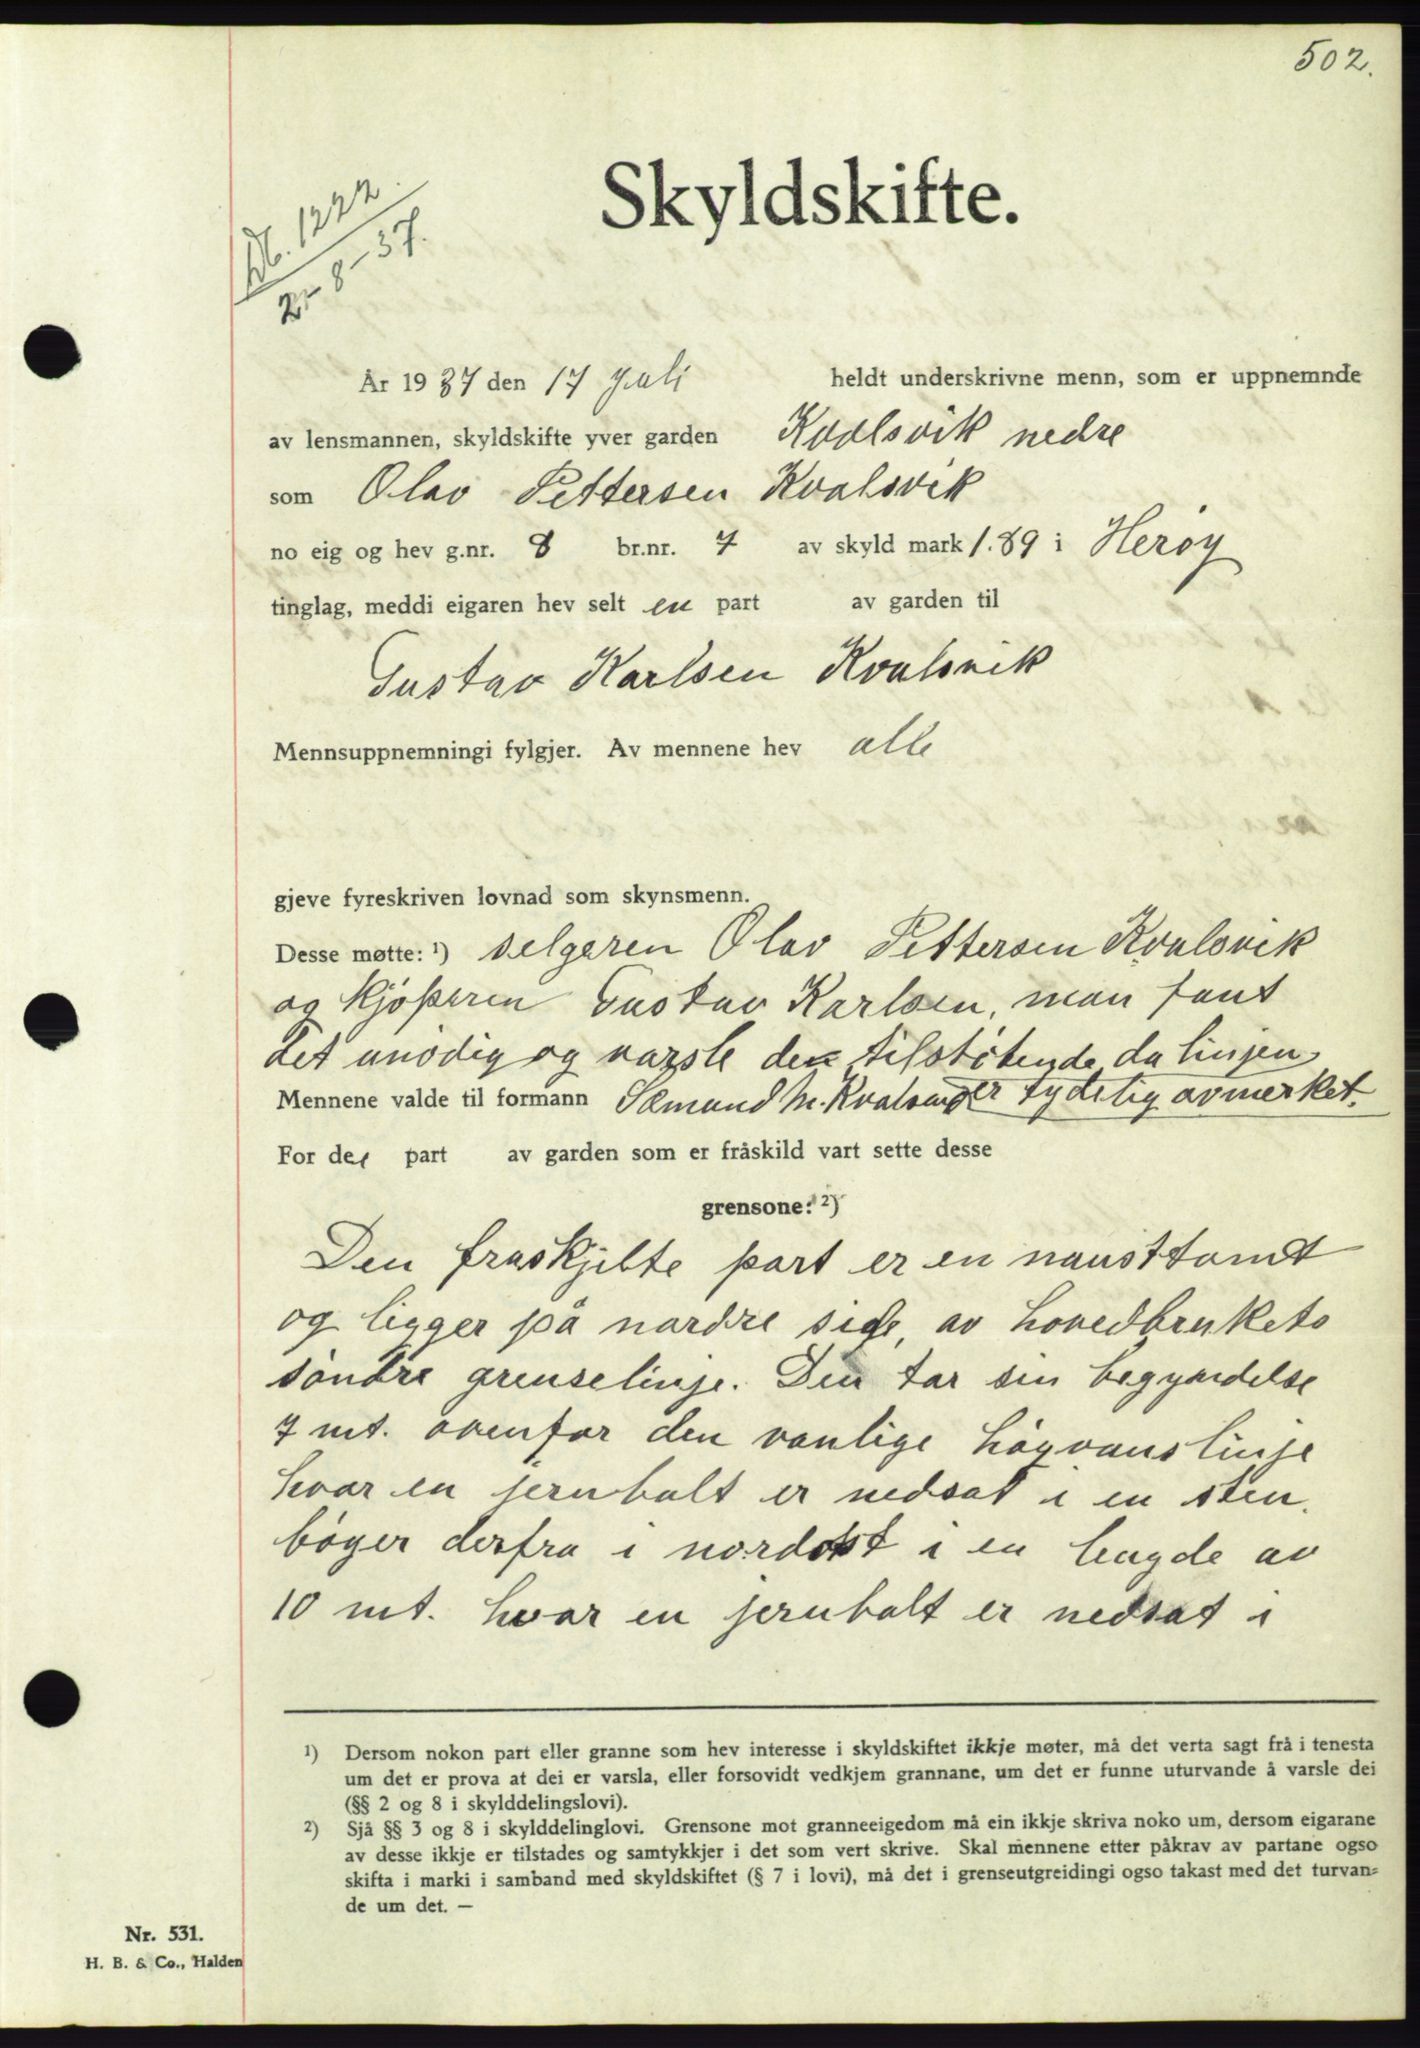 502.
Skyldskifte.
Db. 1222
2-8-37.
År 1937 den 17 Juli heldt underskrivne menn, som er uppnemnde
av lensmannen, skyldskifte yver garden Kvalsvik nedre
som Olav Pettersen Kvalsvik
no eig og hev g.nr. 8 br.nr. 7 av skyld mark 1.89 i Herøy
tinglag, meddi eigaren hev selt en part av garden til
Gustav Karlsen Kvalsvik
Mennsuppnemningi fylgjer. Av mennene hev alle
gjeve fyreskriven lovnad som skynsmenn.
Desse møtte: ¹) selgeren Olav Pettersen Kvalsvik
og kjøperen Gustav Karlsen, man fant
det unødig og varsle de tilstøtende da linjen
er tydelig avmerket.
Mennene valde til formann Sæmund M. Kvalsund
For den part av garden som er fråskild vart sette desse
grensone: ²)
Den fraskjilte part er en nausttomt
og ligger på nordre side, av hovedbrukets
søndre grenselinje. Den tar sin begyndelse
7 mt. ovenfor den vanlige høgvanslinje
hvor en jernbolt er nedsat i en sten.
bøyer derfra i nordost i en lengde av
10 mt. hvor en jernbolt er nedsat i
¹) Dersom nokon part eller granne som hev interesse i skyldskiftet ikkje møter, må det verta sagt frå i tenesta
um det er prova at dei er varsla, eller forsovidt vedkjem grannane, um det er funne uturvande å varsle dei
(§§ 2 og 8 i skylddelingslovi).
²) Sjå §§ 3 og 8 i skylddelinglovi. Grensone mot granneeigedom må ein ikkje skriva noko um, dersom eigarane
av desse ikkje er tilstades og samtykkjer i det som vert skrive. Skal mennene etter påkrav av partane ogso
skifta i marki i samband med skyldskiftet (§ 7 i lovi), må det i grenseutgreidingi ogso takast med det turvan-
de um det. —
Nr. 531.
H. B. & Co., Halden